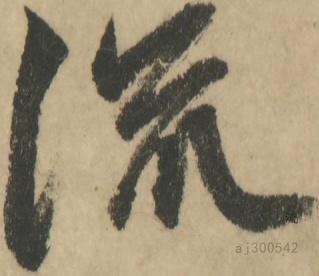 流
aj300542